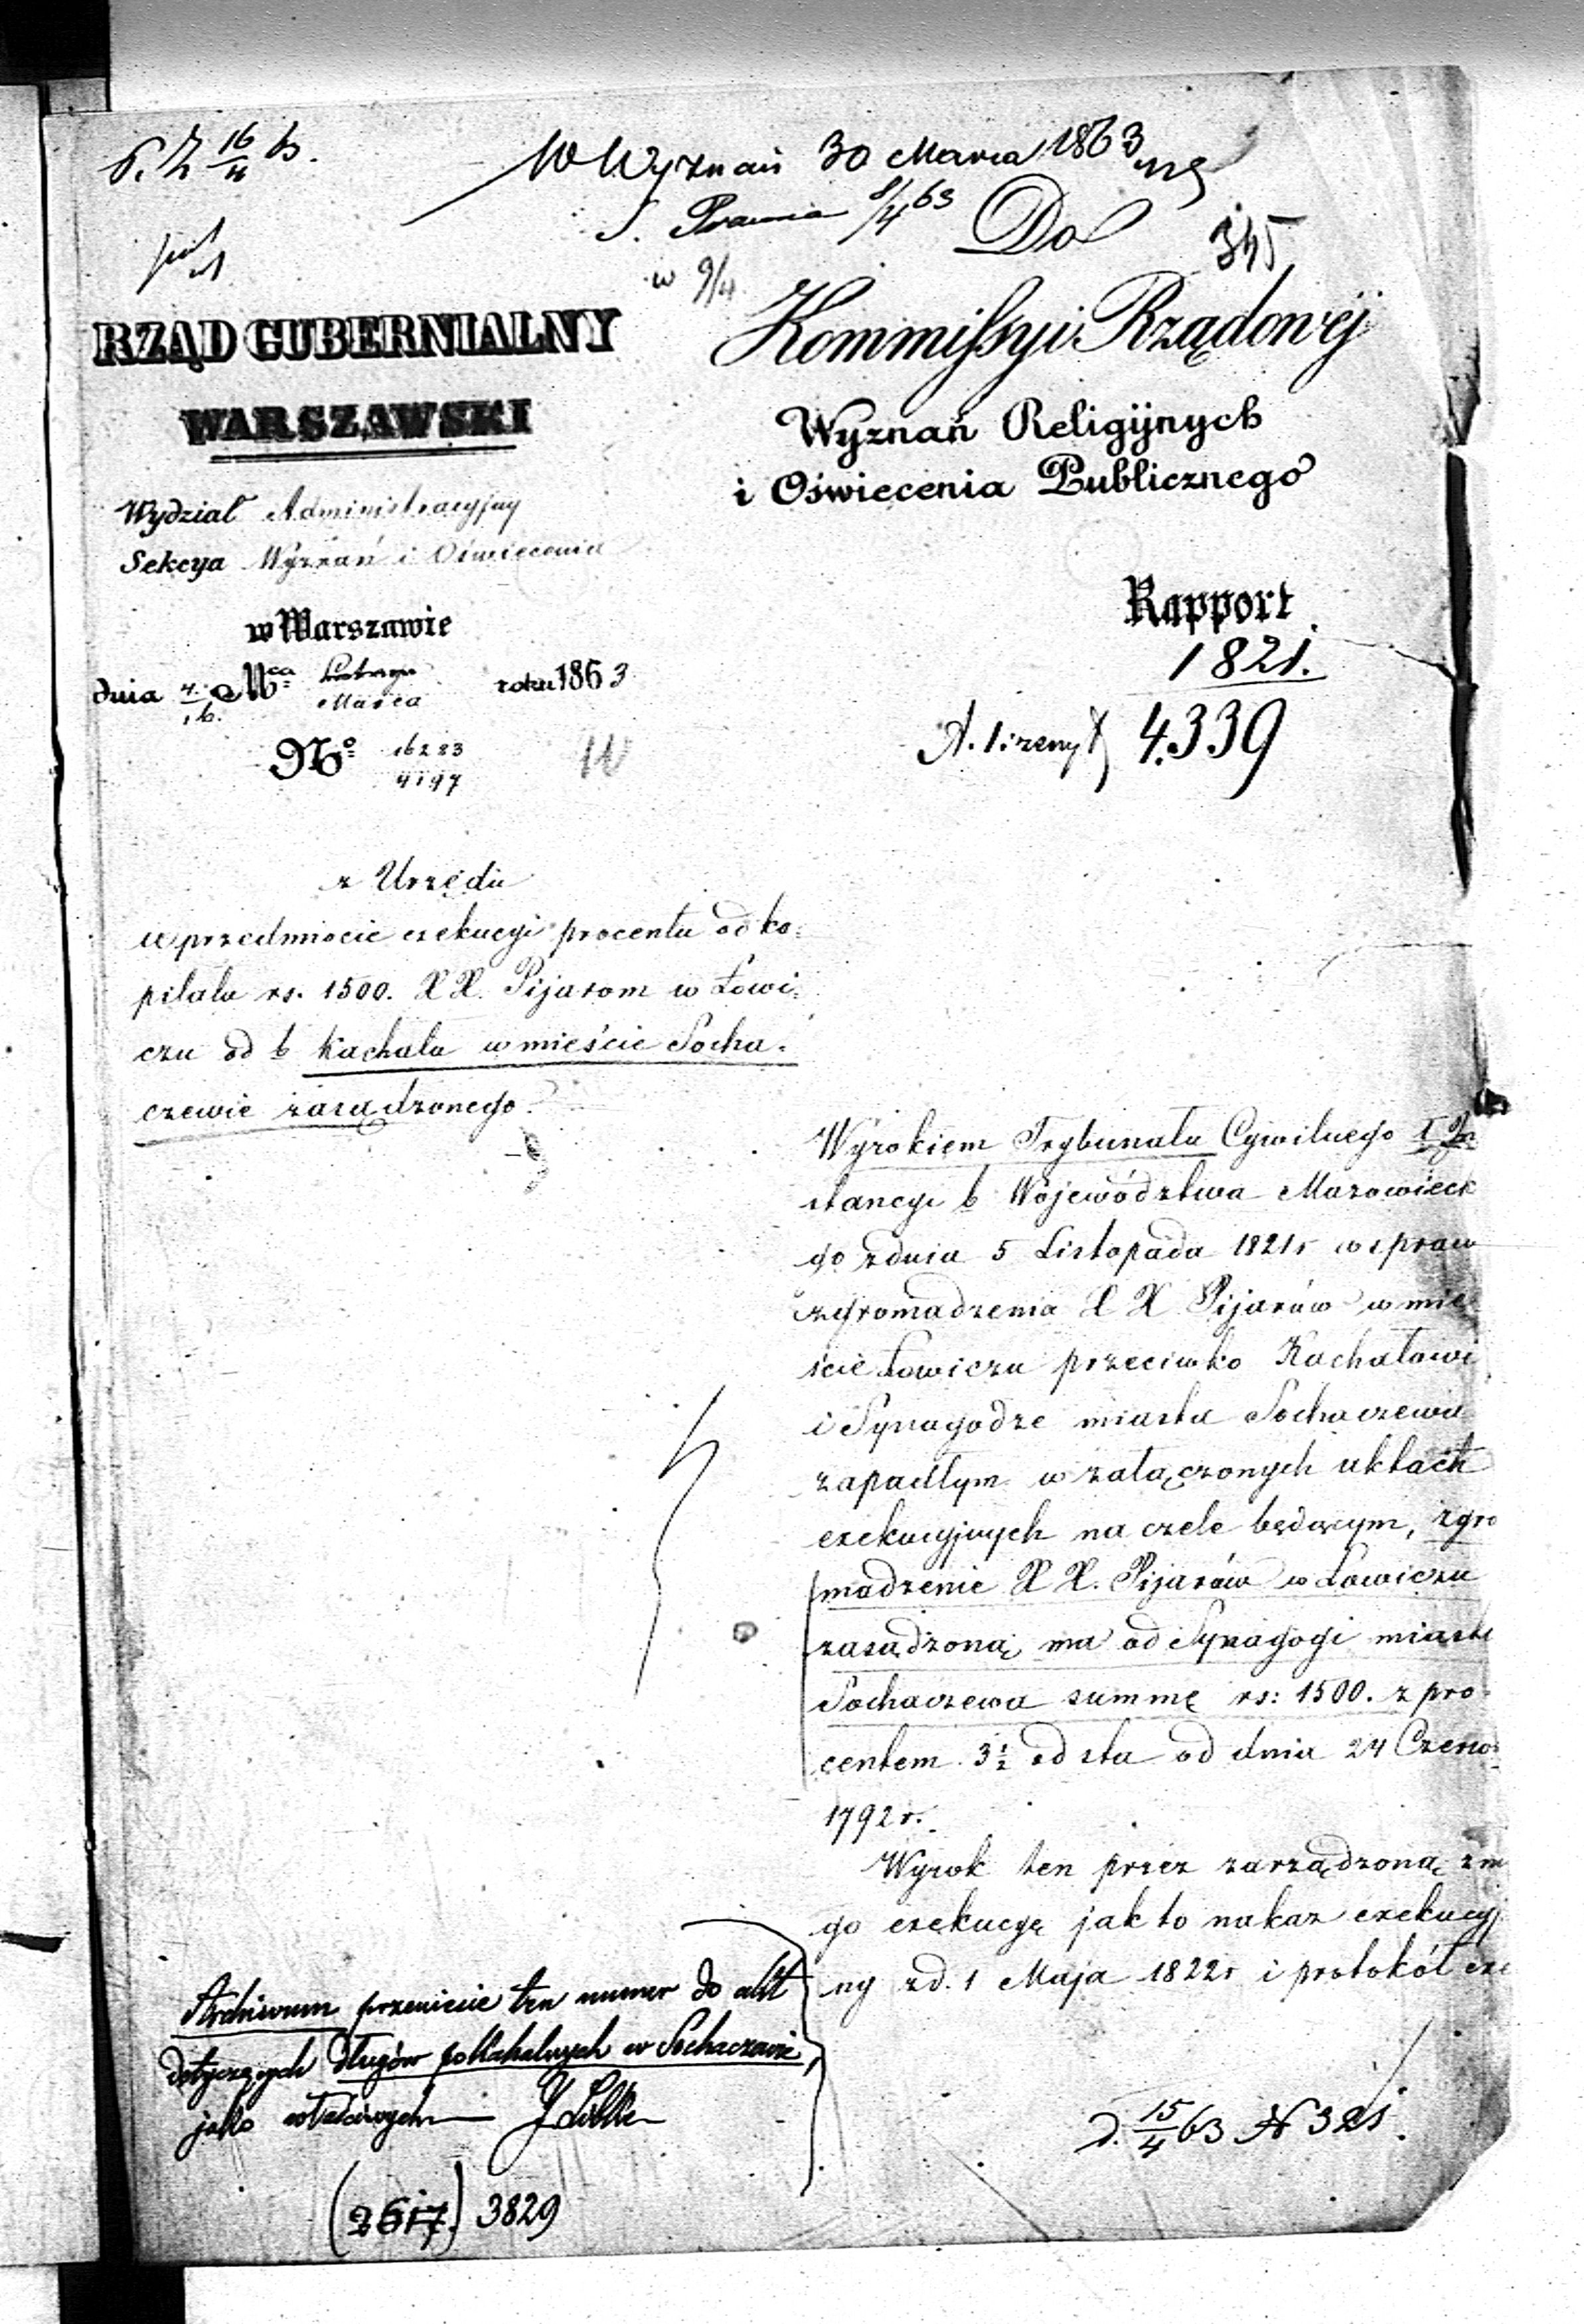 W Wyznań 30 Marca 1863
Do
345
w 9/4
RZĄD GUBERNIALNY
WARSZAWSKI
Kommissyi Rządowéj
Wyznań Religijnych
i Oświecenia Publicznego
Wydział Administracyjny
Sekcya Wyznań i Oświecenia
w Warszawie
dnia 4/16 Mca Lutego/Marca roku 1863
No 16283
4197
Rapport
1821.
4.339
z Urzędu
w przedmiocie exekucyi procentu od ka=
pitału rs. 1500. XX. Pijarom w Łowi=
czu od b Kachału w mieście Socha=
czewie zasądzonego.
Wyrokiem Trybunału Cywilnego I In
stancyi b Województwa Mazowieck
go z dnia 5 Listopada 1821 r w spraw
zgromadzenia XX Pijarów w mie
ście Łowiczu przeciwko Kachałowi
i Synagodze miasta Sochaczewa
zapadłym w załączonych aktach
exekucyjnych na czele będącym, zgro
madzenie XX. Pijarów w Łowiczu
zasądzoną ma od Synagogi miasta
Sochaczewa summę rs: 1500. z pro=
centem 3½ od sta od dnia 24 Czerw
1792 r.
Wyrok ten przez zarządzoną z m
go exekucyę jak to nakaz exekucyj
ny z d. 1 Maja 1822 r i protokół exe
Archiwum przeniesie ten numer do akt
dotyczących długów po Kahalnych w Sochaczewie,
jako właściwych
d. 15/4 63 N 321.
(2617.) 3829